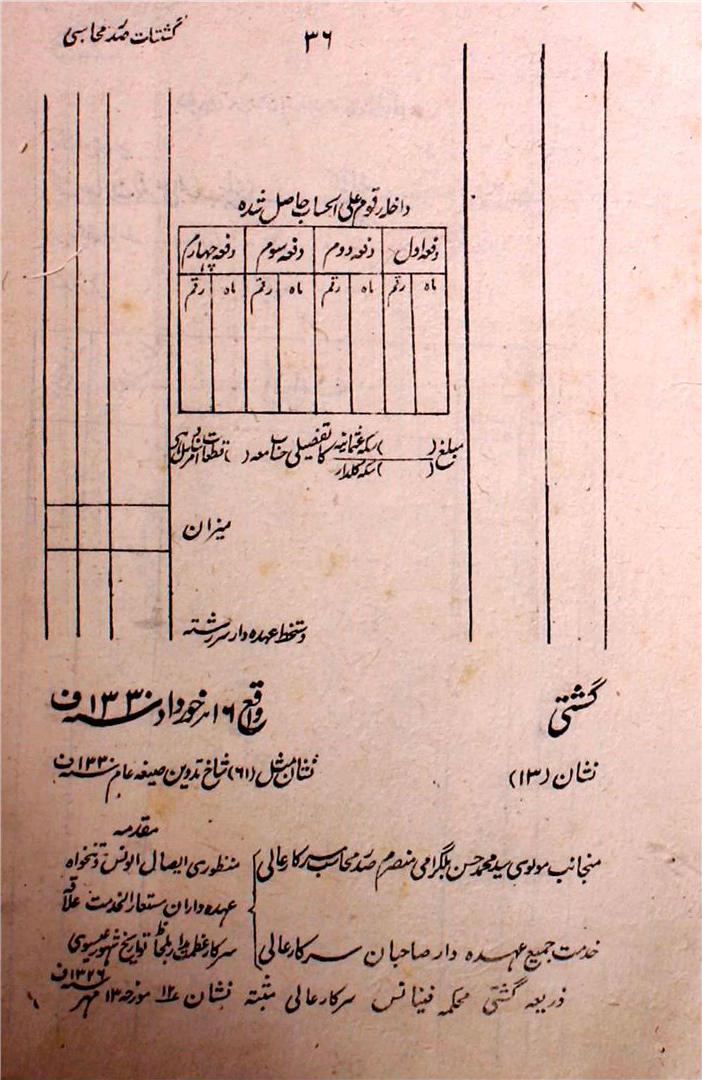 ۳۶
گشتیات صدر محاسبی
داخلہ رقوم علی الحساب حاصل شدہ
دفعہ اول دفعہ دوم دفعہ سوم دفعہ چہارم
ماہ رقم ماہ رقم ماہ رقم ماہ رقم
مبلغ ( ) سکہ عثمانیہ
( ) سکہ کلدار
کا تفصیلی حساب معہ ( ) قطعات
میزان
دستخط عہدہ دار سررشتہ
گشتی واقع ۱۶ خورداد ۱۳۳۰ ف
نشان (۱۳) نشان مثل (۶۱) شاخ تدوین صیغہ عام ۱۳۳۰ ف
مقدمہ
منجانب مولوی سید محمد حسن بلگرامی منصرم صدر محاسب سرکار عالی منظوری ایصال الونس و تنخواہ
عہدہ داران مستعار الخدمت علاقہ
خدمت جمیع عہدہ دار صاحبان سرکار عالی سرکار عظمت مدار بلحاظ تواریخ شہور عیسوی
ذریعہ گشتی محکمہ فینانس سرکار عالی مثبتہ نشان ۱۲ مورخہ ۱۳ مہر ۱۳۲۶ ف